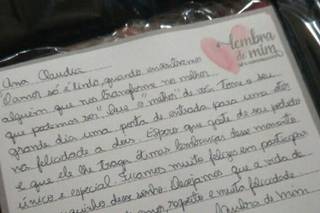 lembra
de mim
Ana Claudia
O amor só é lindo, quando encontramos
alguém que nos transforme no melhor
que podemos ser". Que o "melhor" de vós Torne o seu
grande dia uma porta de entrada para uma
na felicidade a deus. Espero que goste do seu pedido
e que ele lhe Traga boas lembranças desse momento
único e especial. Ficamos muito felizes em participar
desse sonho. Desejamos que a vida de
amor, respeito e muita felicidade
lembra de mim